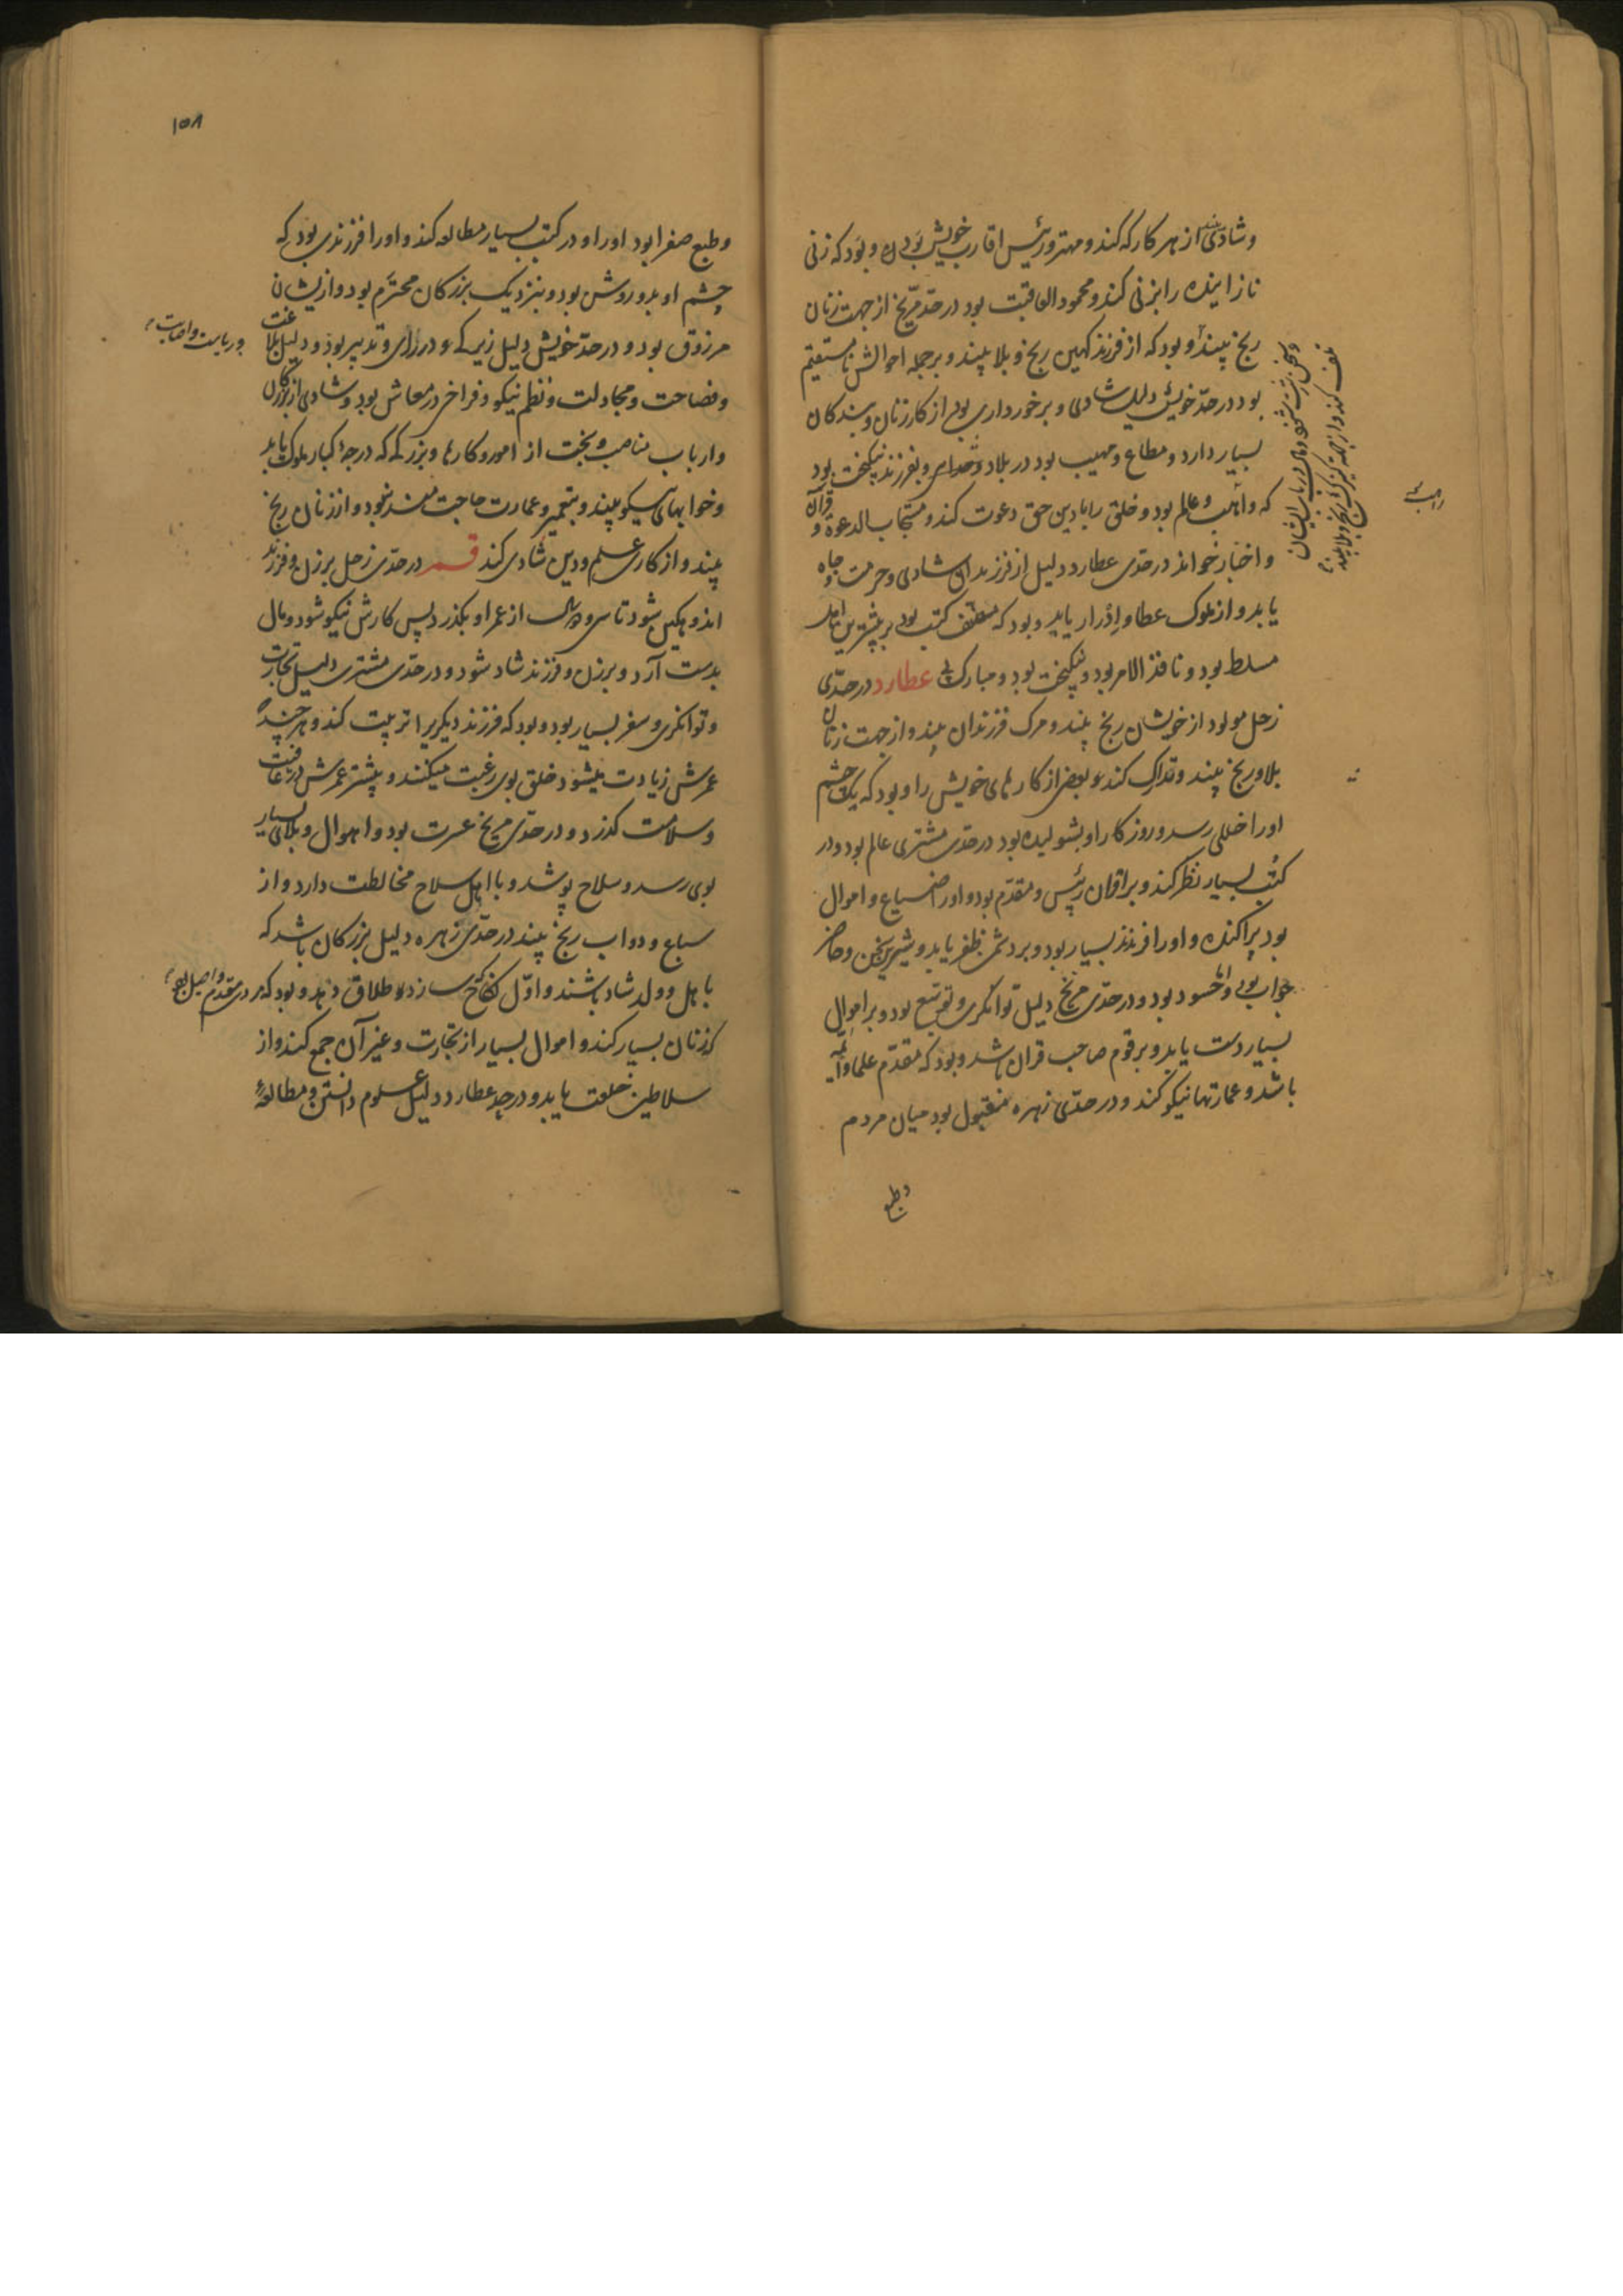 وشادی از هر کار که کند و مهتر و رئیس اقارب خویش بود و بود که زنی
نازاینده را بزنی کند و محمود العاقبت بود در حدّ مریخ از جهت زنان
رنج بیند و بود که از فرزند کهین رنج و بلا بیند و بر جمله احوالش نامستقیم
بود در حدّ خویش دلیل شادی و برخورداری بود از کار زنان و بندکان
بسیار دارد و مطاع و مهیب بود در بلاد و بفرزند نیکبخت بود
که واهب و عالم بود و خلق را با دین حق دعوت کند و مستجاب الدعوة و قرآن
و اخبار خواند در حدّی عطارد دلیل از فرزندان شادی و حرمت و جاه
یابد و از ملوک عطا و ادرار یابد و بود که مصنف کتب بود بر بیشترین
مسلط بود و نافذ الامر بود و نیکبخت بود و مبارک پی عطارد در حدّی
زحل مولود از خویشان رنج بیند و مرک فرزندان بیند و از جهت زنان
بلا و رنج بیند و تدارک کند بعضی از کارهای خویش را و بود که یک چشم
او را خللی رسد و روزکار او بشولیده بود در حدّی مشتری عالم بود و در
کتب بسیار نظر کند و بر اقران رئیس و مقدّم بود و او را ضیاع و اموال
بود پراکنده و او را فرزند بسیار بود و بر دشمن ظفر یابد و شیرین سخن و حاضر
جواب بود و محسود بود و در حدّی مریخ دلیل توانکری و توسّع بود و بر اموال
بسیار دست یابد و بر قوم صاحب قران باشد و بود که مقدّم علما و ائمه
باشد و عمارتها نیکو کند و در حدّی زهره مقبول بود میان مردم
وطبع
راهب
۱۵۸
وطبع صفرا بود او را و در کتب بسیار مطالعه کند و او را فرزندی بود که
چشم او بدو روشن بود و بنزدیک بزرکان محترم بود و از یشان
مرزوق بود و در حدّ خویش دلیل زیرکی و در رای و تدبیر بود و دلیل بلاغت
و فصاحت و مجادلت و نظم نیکو و فراخی در معاش بود و شادی از بزرکان
و ارباب مناصب و بخت از امور و کارها و بزرکی که درجهٔ کبار ملوک یابد
و خوابهای نیکو بیند و بتعمیر و عمارت حاجت مند شود و از زنان رنج
بیند و از کار علم و دین شادی کند قمر در حدّی زحل بر زن و فرزند
اندوهکین شود تا سی و دو سال از عمر او بکذرد پس کارش نیکو شود و مال
بدست آرد و بر زن و فرزند شاد شود و در حدّی مشتری دلیل تجارت
و توانکری و سفر بسیار بود و بود که فرزند دیکریرا تربیت کند و هر چند
عمرش زیادت میشود خلق بوی رغبت میکنند و بیشتر عمرش در عافیت
و سلامت کذرد و در حدّی مریخ عسرت بود و اهوال و بلای بسیار
بوی رسد و سلاح پوشد و با اهل سلاح مخالطت دارد و از
سباع و دواب رنج بیند در حدّی زهره دلیل بزرکان باشد که
باهل و ولد شاد باشند و اوّل نکاح سازد و طلاق دهد و بود که
کرزنان بسیار کند و اموال بسیار از تجارت و غیر آن جمع کند و از
سلاطین خلعت یابد و در حد عطارد دلیل علوم دانستن و مطالعهٔ
و ریاست و اصابت